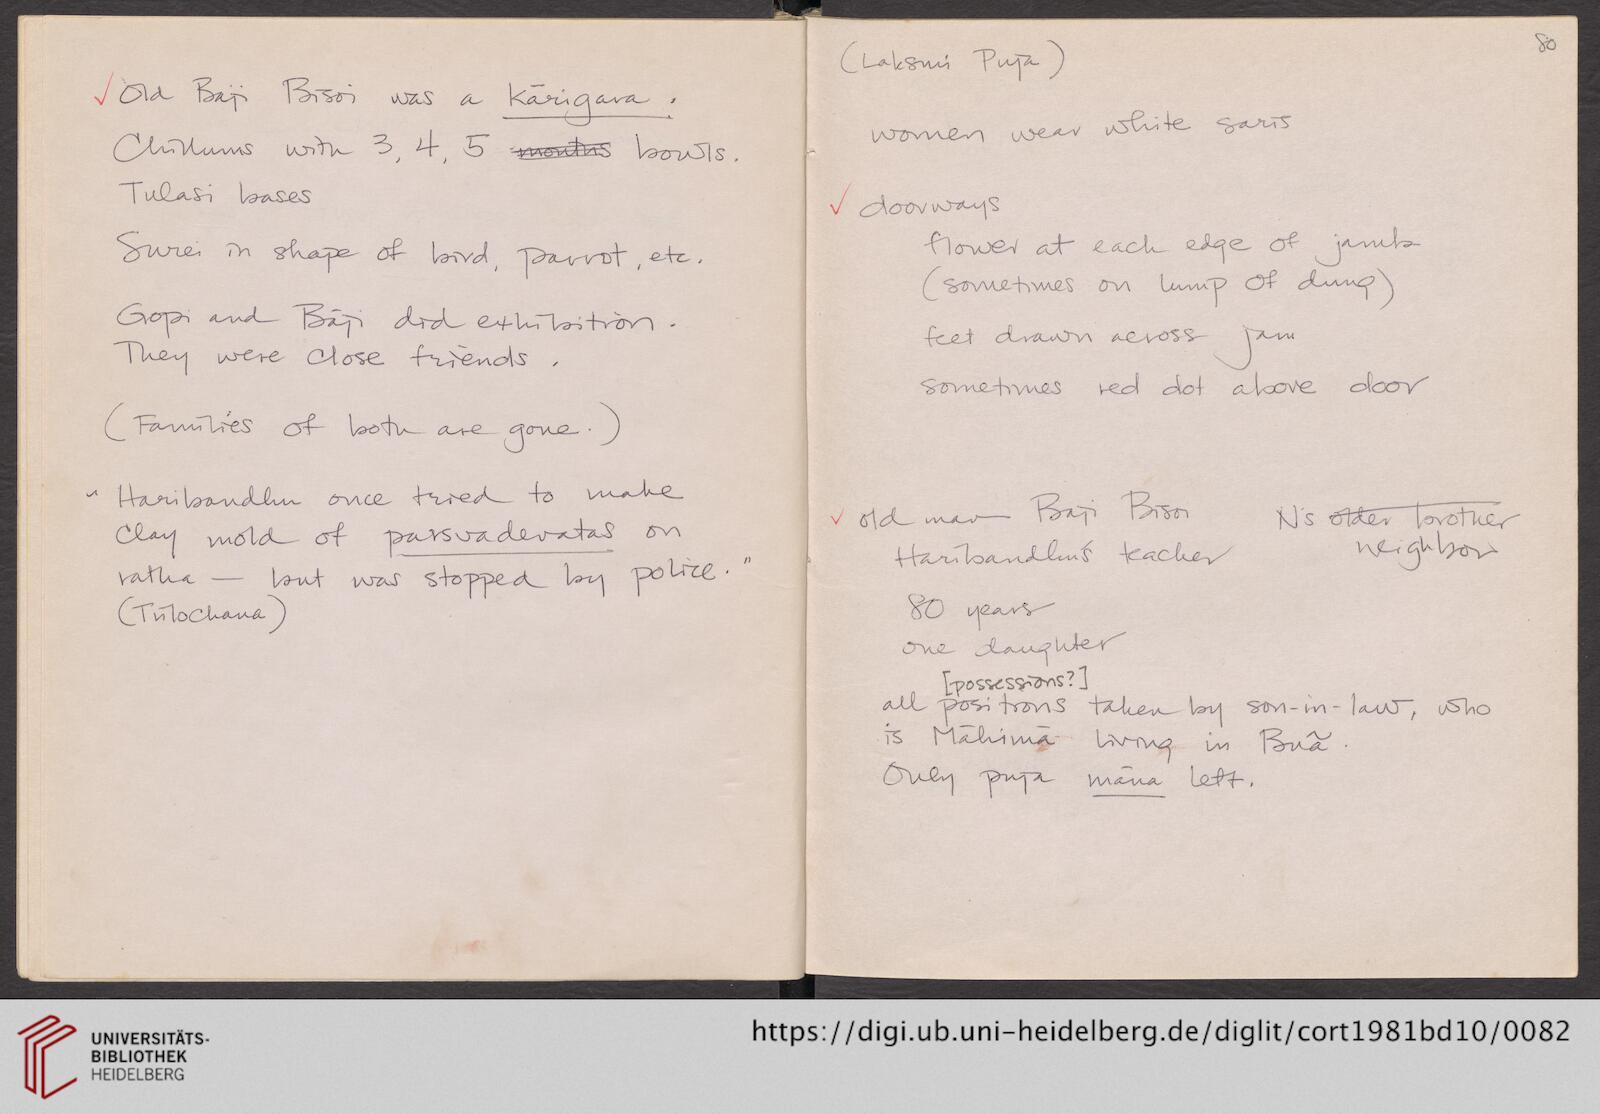 ✓ Old Baji Bisoi was a Kārigara.
Chillums with 3, 4, 5 ~~mouths~~ bowls.
Tulasi bases
Surei in shape of bird, parrot, etc.
Gopi and Bāji did exhibition.
They were close friends.
(Families of both are gone.)
"Haribandhu once tried to make
clay mold of parsvadevatas on
ratha — but was stopped by police."
(Trilochana)
80
(Laksmi Puja)
women wear white saris
✓ doorways
flower at each edge of jamb
(sometimes on lump of dung)
feet drawn across jam
sometimes red dot above door
✓ old man Baji Bisoi N's ~~older brother~~
neighbor
Haribandhu's teacher
80 years
one daughter
[possessions?]
all positions taken by son-in-law, who
is Māhimā living in Buā.
Only puja māna left.
UNIVERSITÄTS-
BIBLIOTHEK
HEIDELBERG
https://digi.ub.uni-heidelberg.de/diglit/cort1981bd10/0082